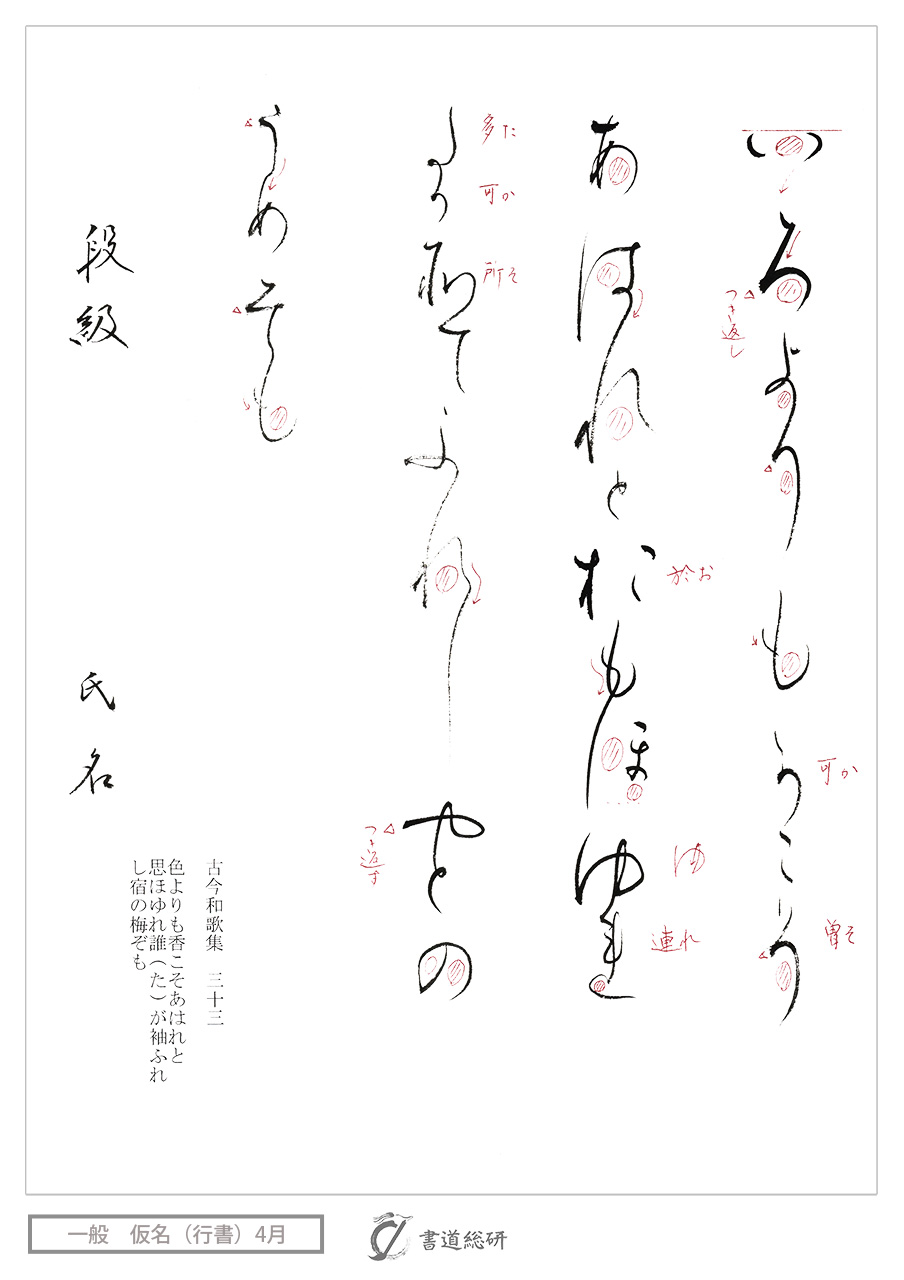 いろよりも可こ曽
可か
曽そ
つき返し
あはれと於もほゆ連
於お
ゆ
連れ
多可所てふれしやとの
多た
可か
所そ
つき返す
うめそも
段級
氏名
古今和歌集　三十三
色よりも香こそあはれと
思ほゆれ誰（た）が袖ふれ
し宿の梅ぞも
一般　仮名（行書）4月
書道総研